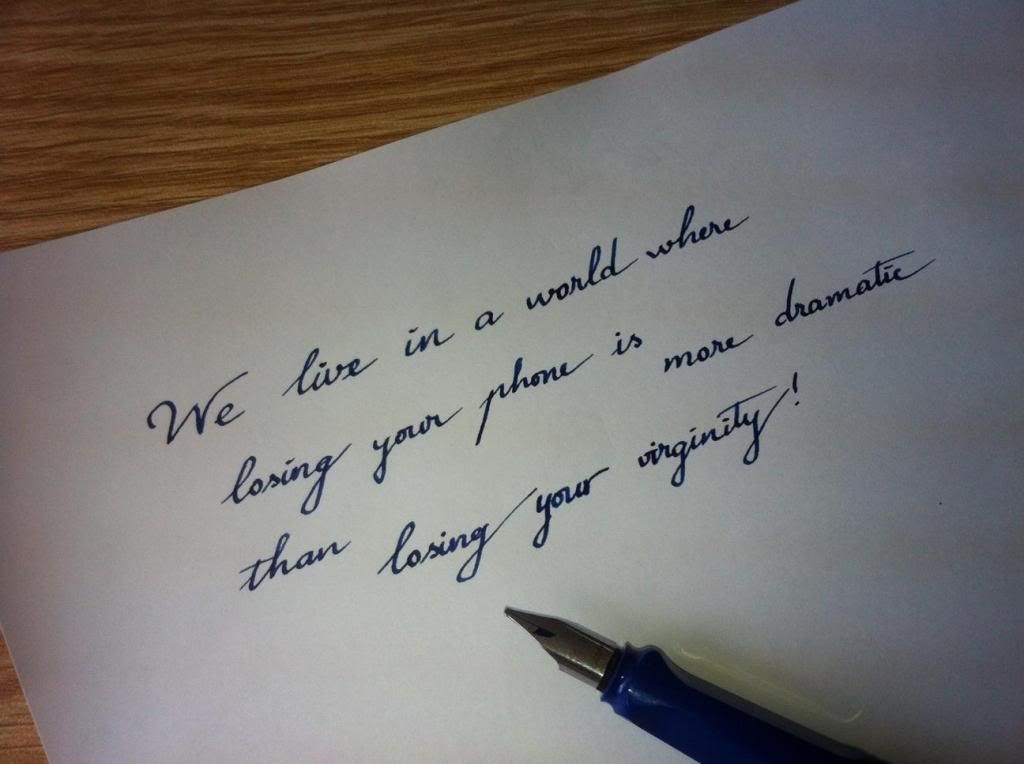 We live in a world where
losing your phone is more dramatic
than losing your virginity!